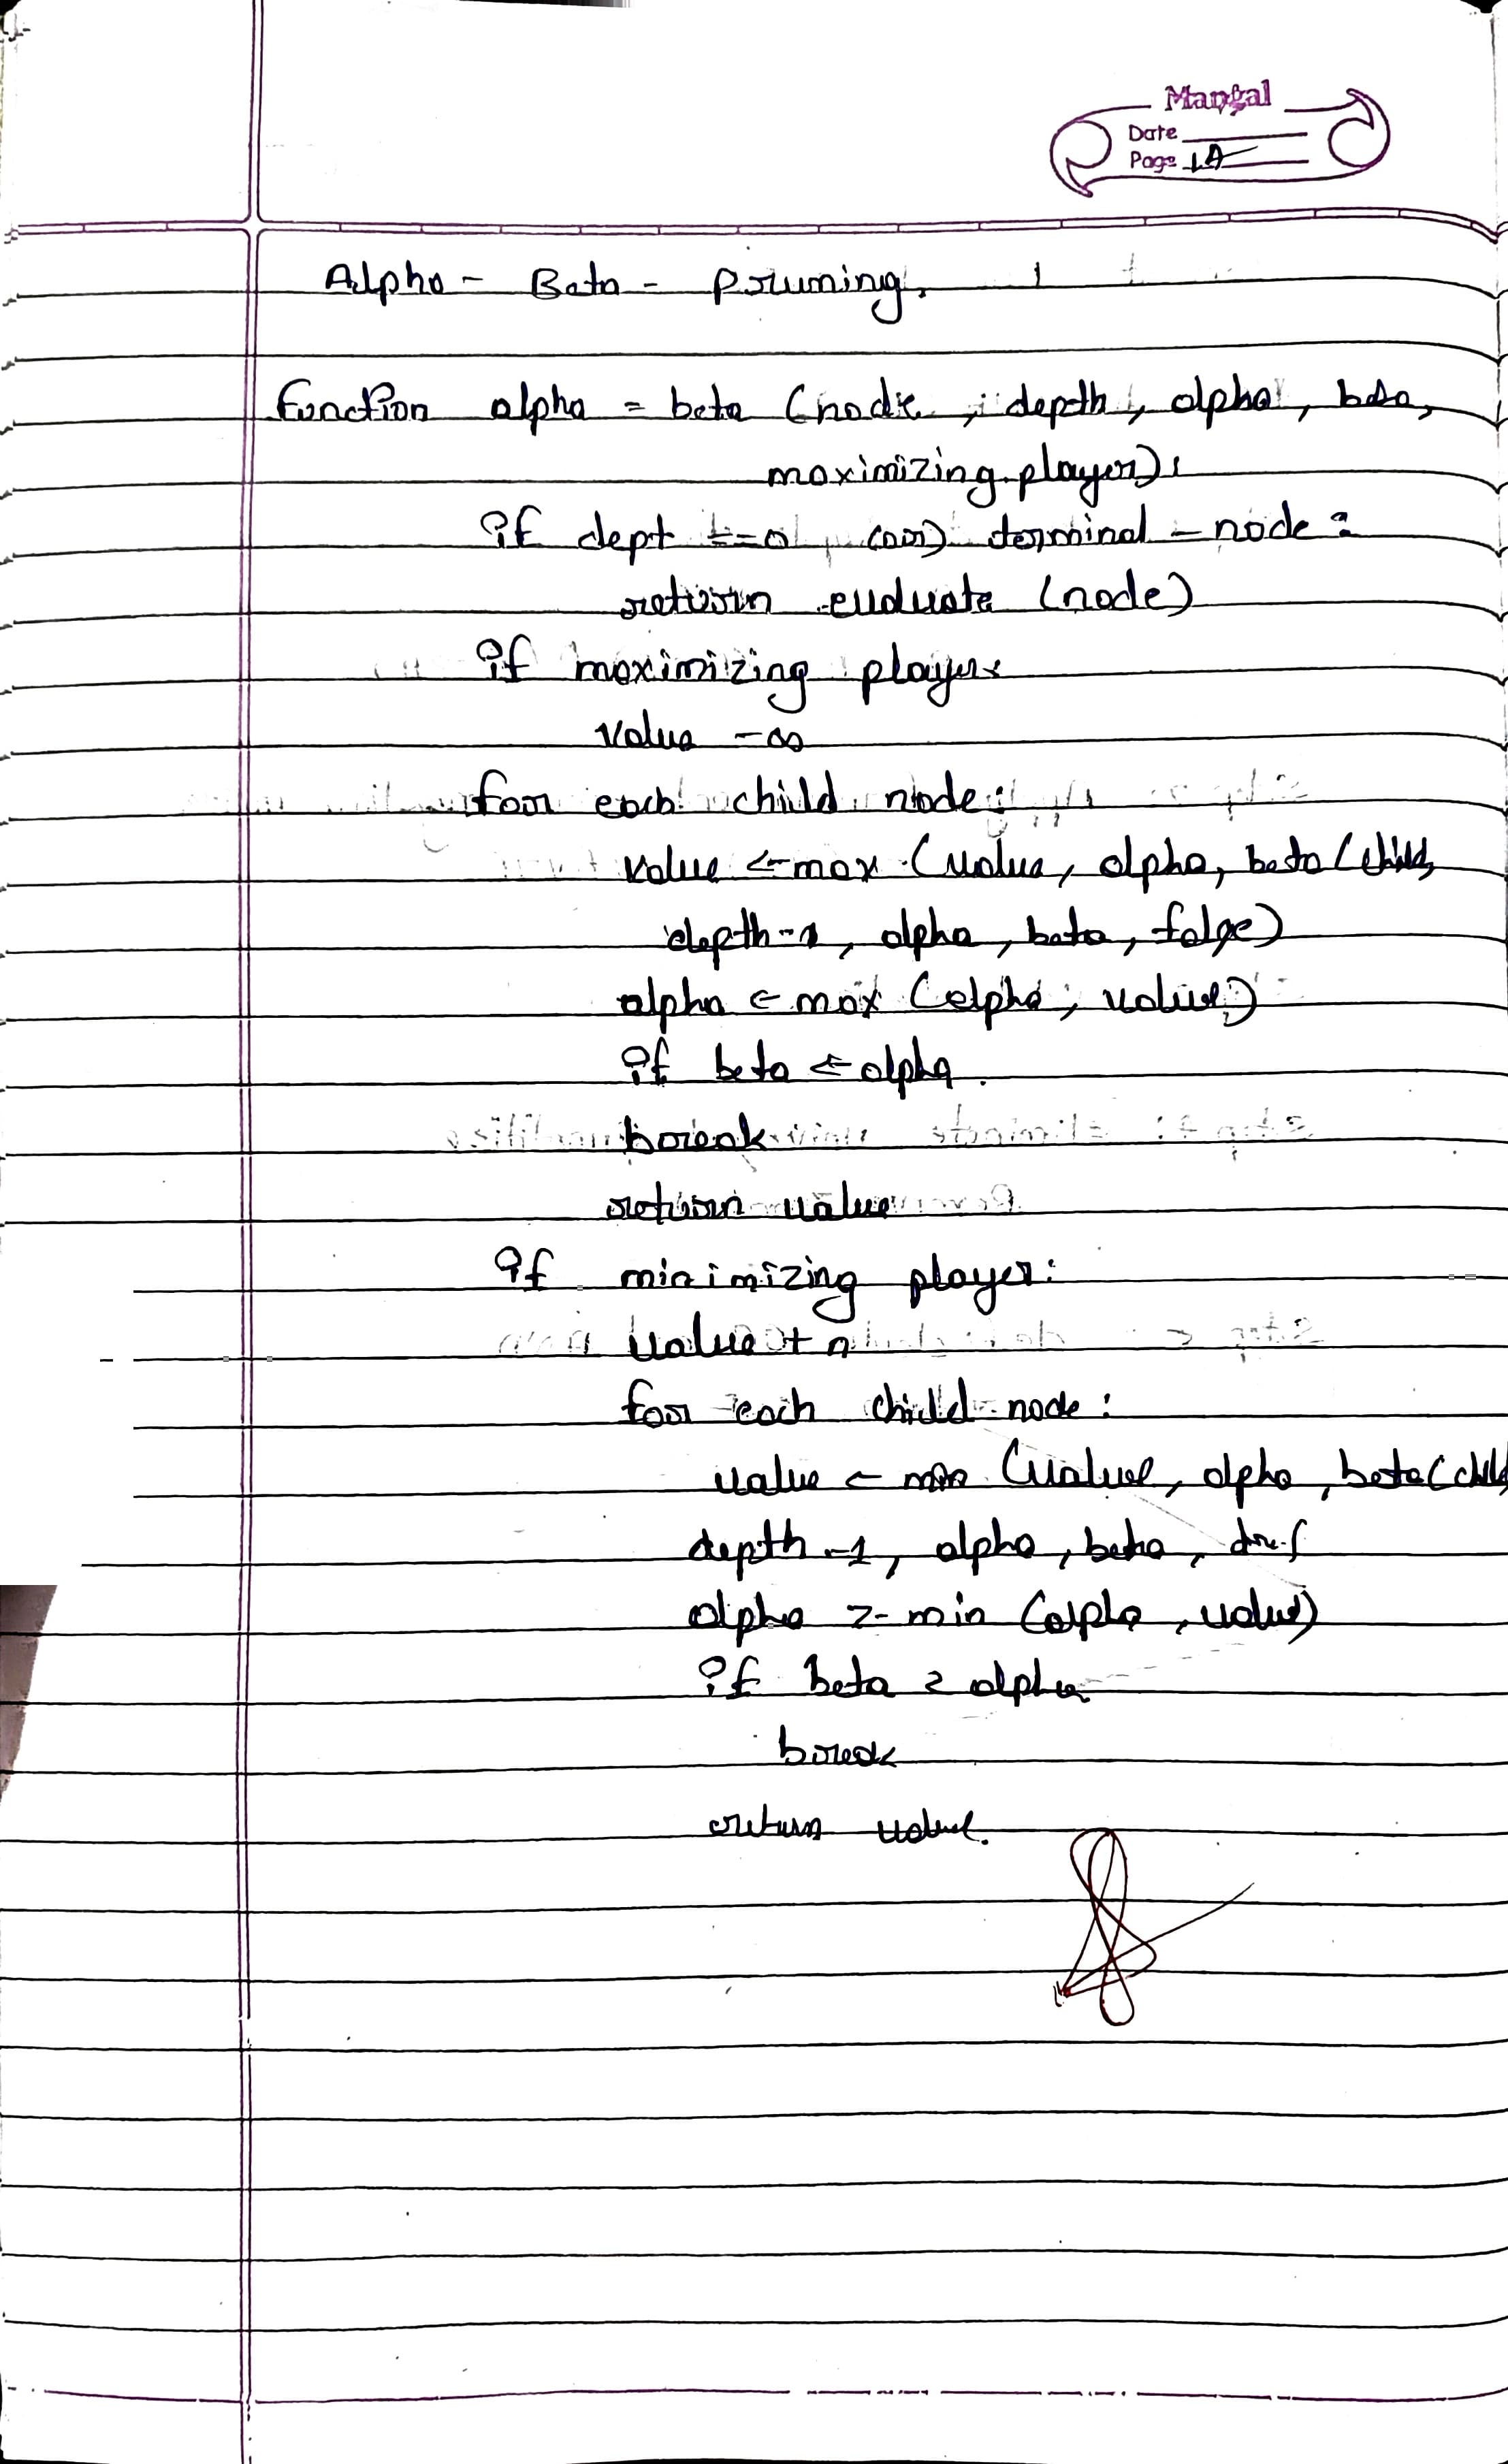 Mangal
Date
Page 1A
Alpha - Beta - pruning.
function alpha = beta (node, depth, alpha, beta,
maximizing player):
if dept == 0 (or) terminal - node:
return evaluate (node)
if maximizing player:
value -∞
for each child node:
value <- max (value, alpha, beta (child,
depth-1, alpha, beta, false)
alpha ← max (alpha, value)
if beta ← alpha
break
return value
if minimizing player:
value + n
for each child node:
value ← min (value, alpha, beta (child
depth-1, alpha, beta,
alpha min (alpha, value)
if beta alpha
break
return value.